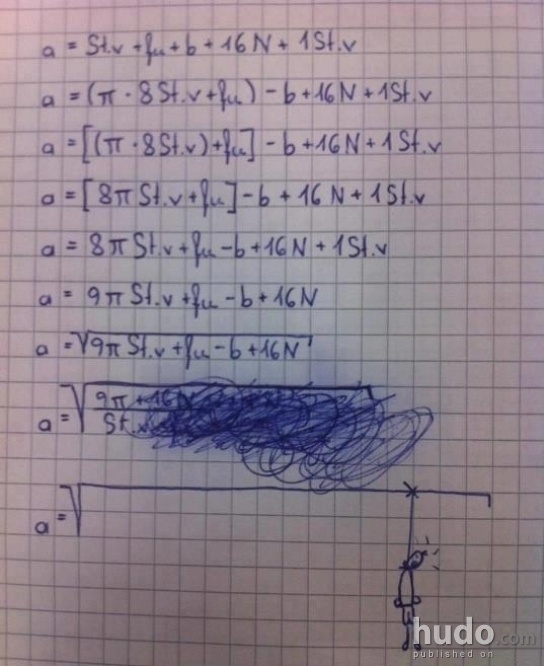 a = St.v + fu + b + 16 N + 1 St.v
a = (π · 8 St.v + fu) - b + 16 N + 1 St.v
a = [(π · 8 St.v) + fu] - b + 16 N + 1 St.v
a = [8π St.v + fu] - b + 16 N + 1 St.v
a = 8π St.v + fu - b + 16 N + 1 St.v
a = 9π St.v + fu - b + 16 N
a = √9π St.v + fu - b + 16 N
a = √9π + 16
St.
a = √
hudo.com
published on